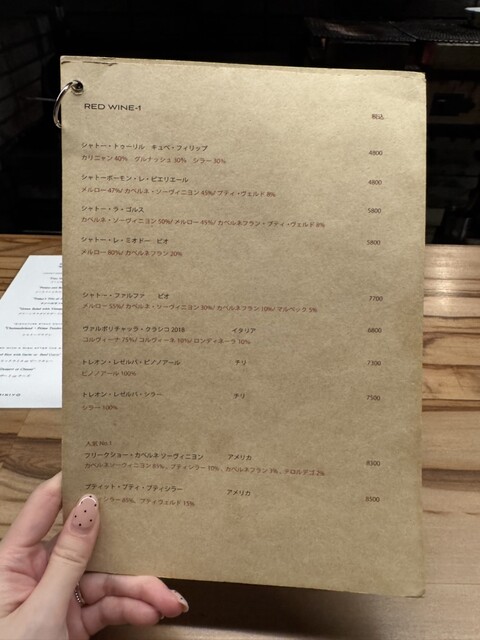 RED WINE-1
税込
シャトー・トゥーリル　キュベ・フィリップ 4800
カリニャン 40%　グルナッシュ 30%　シラー 30%
シャトーボーモン・レ・ピエリエール 4800
メルロー 47%/ カベルネ・ソーヴィニヨン 45%/ プティ・ヴェルド 8%
シャトー・ラ・ゴルス 5800
カベルネ・ソーヴィニヨン 50%/ メルロー 45%/ カベルネフラン・プティ・ヴェルド 8%
シャトー・レ・ミオドー　ビオ 5800
メルロー 80%/ カベルネフラン 20%
シャトー・ファルファ　ビオ 7700
メルロー 55%/ カベルネ・ソーヴィニヨン 30%/ カベルネフラン 10%/ マルベック 5%
ヴァルポリチェッラ・クラシコ 2018　イタリア 6800
コルヴィーナ 75%/ コルヴィーネ 10%/ ロンディネーラ 10%
トレオン・レゼルバ・ピノノアール　チリ 7300
ピノノアール 100%
トレオン・レゼルバ・シラー　チリ 7500
シラー 100%
人気 No.1
ツリークショー・カベルネ ソーヴィニヨン　アメリカ 8300
カベルネソーヴィニヨン 81%、プティシラー 10%、カベルネフラン 7%、テロルデゴ 2%
プティット・プティ・プティシラー　アメリカ 8500
シラー 85%、プティヴェルド 15%